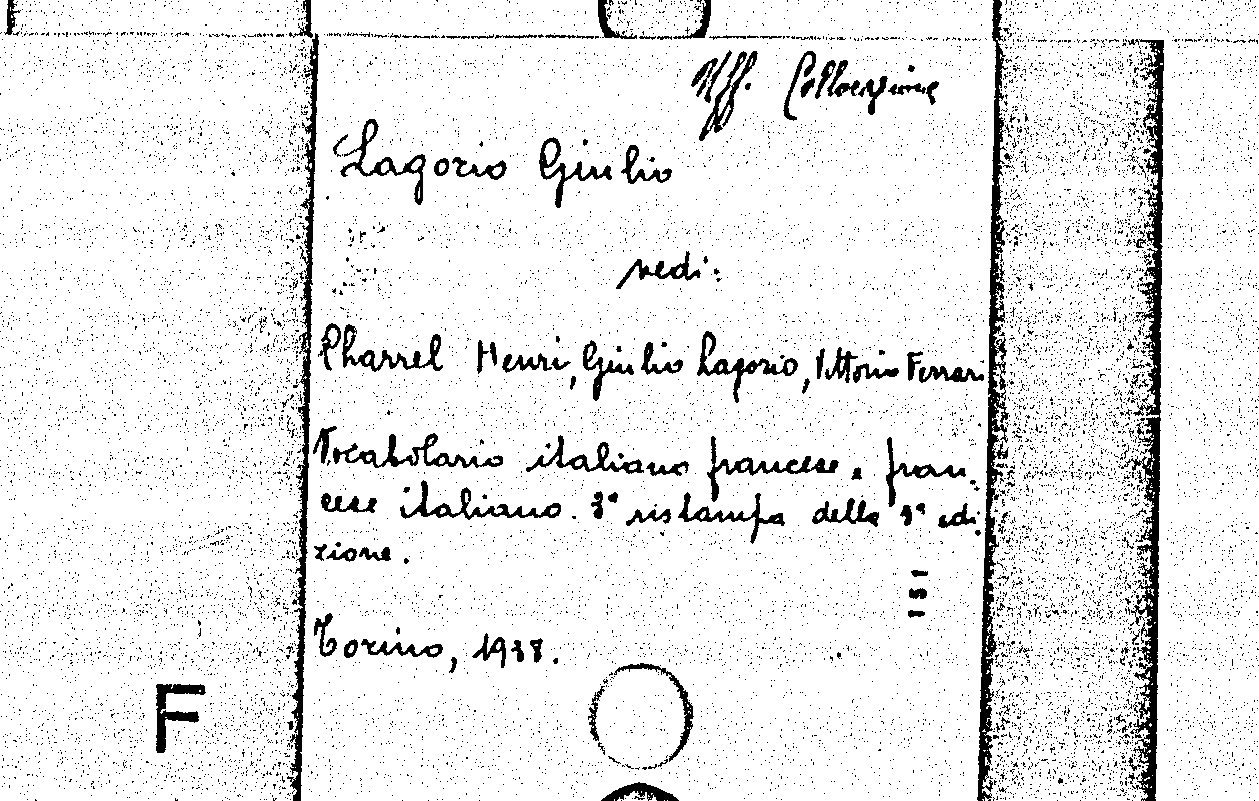 Uff. Collocazione
Lagorio Giulio
vedi:
Pharrel Henri, Giulio Lagorio, Vittorio Ferrari
Vocabolario italiano francese e fran-
cese italiano. 3ª ristampa della 9ª edi
zione.
151
Torino, 1938.
F